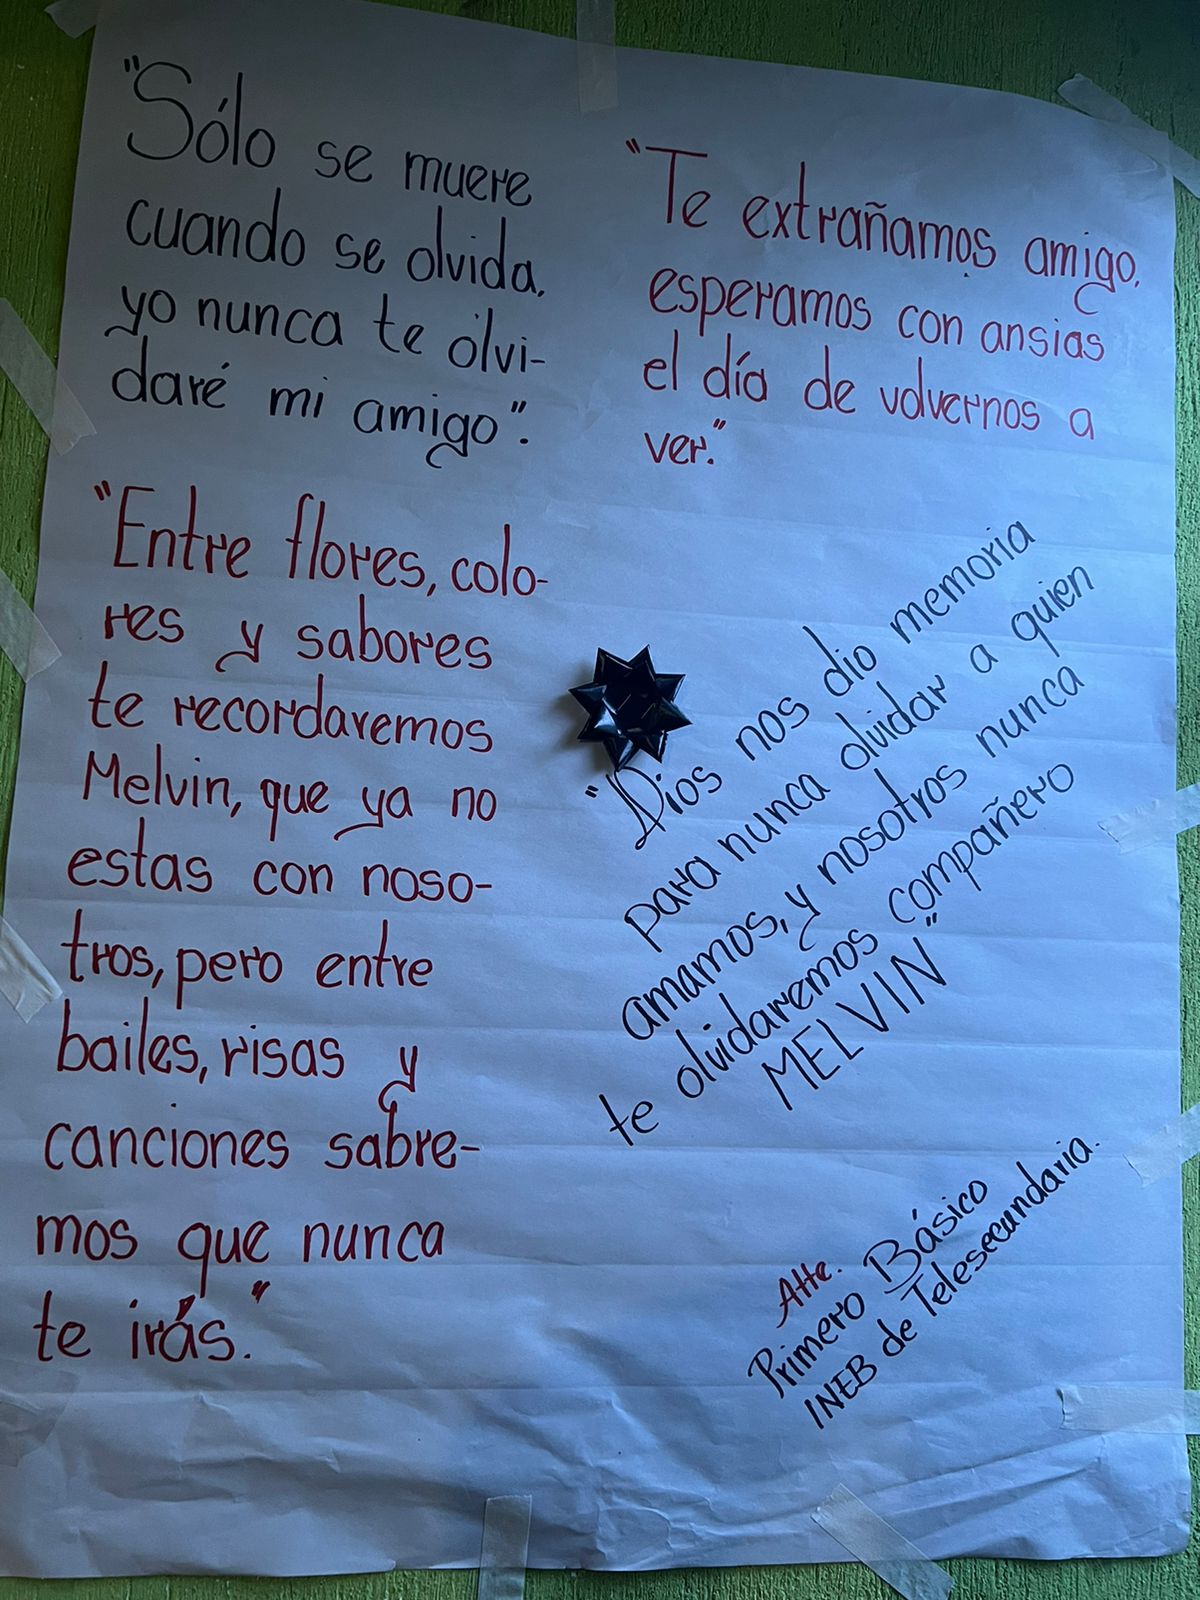 "Sólo se muere
cuando se olvida,
yo nunca te olvi-
daré mi amigo".
"Te extrañamos amigo,
esperamos con ansias
el día de volvernos a
ver."
"Entre flores, colo-
res y sabores
te recordaremos
Melvin, que ya no
estas con noso-
tros, pero entre
bailes, risas y
canciones sabre-
mos que nunca
te irás."
"Dios nos dio memoria
para nunca olvidar a quien
amamos, y nosotros nunca
te olvidaremos compañero
MELVIN"
Atte.
Primero Básico
INEB de Telesecundaria.